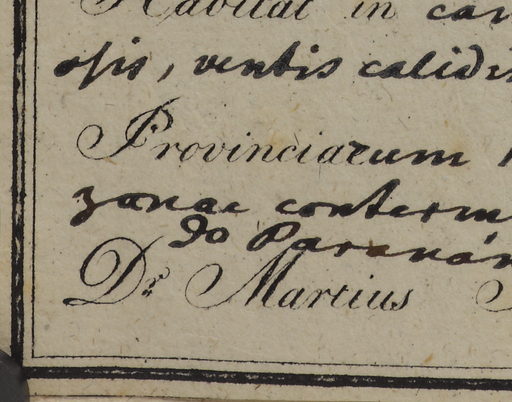 Habitat in cam
osis, ventis calidis
Provinciarum
zonae conterm
do Paranán
Dr. Martius